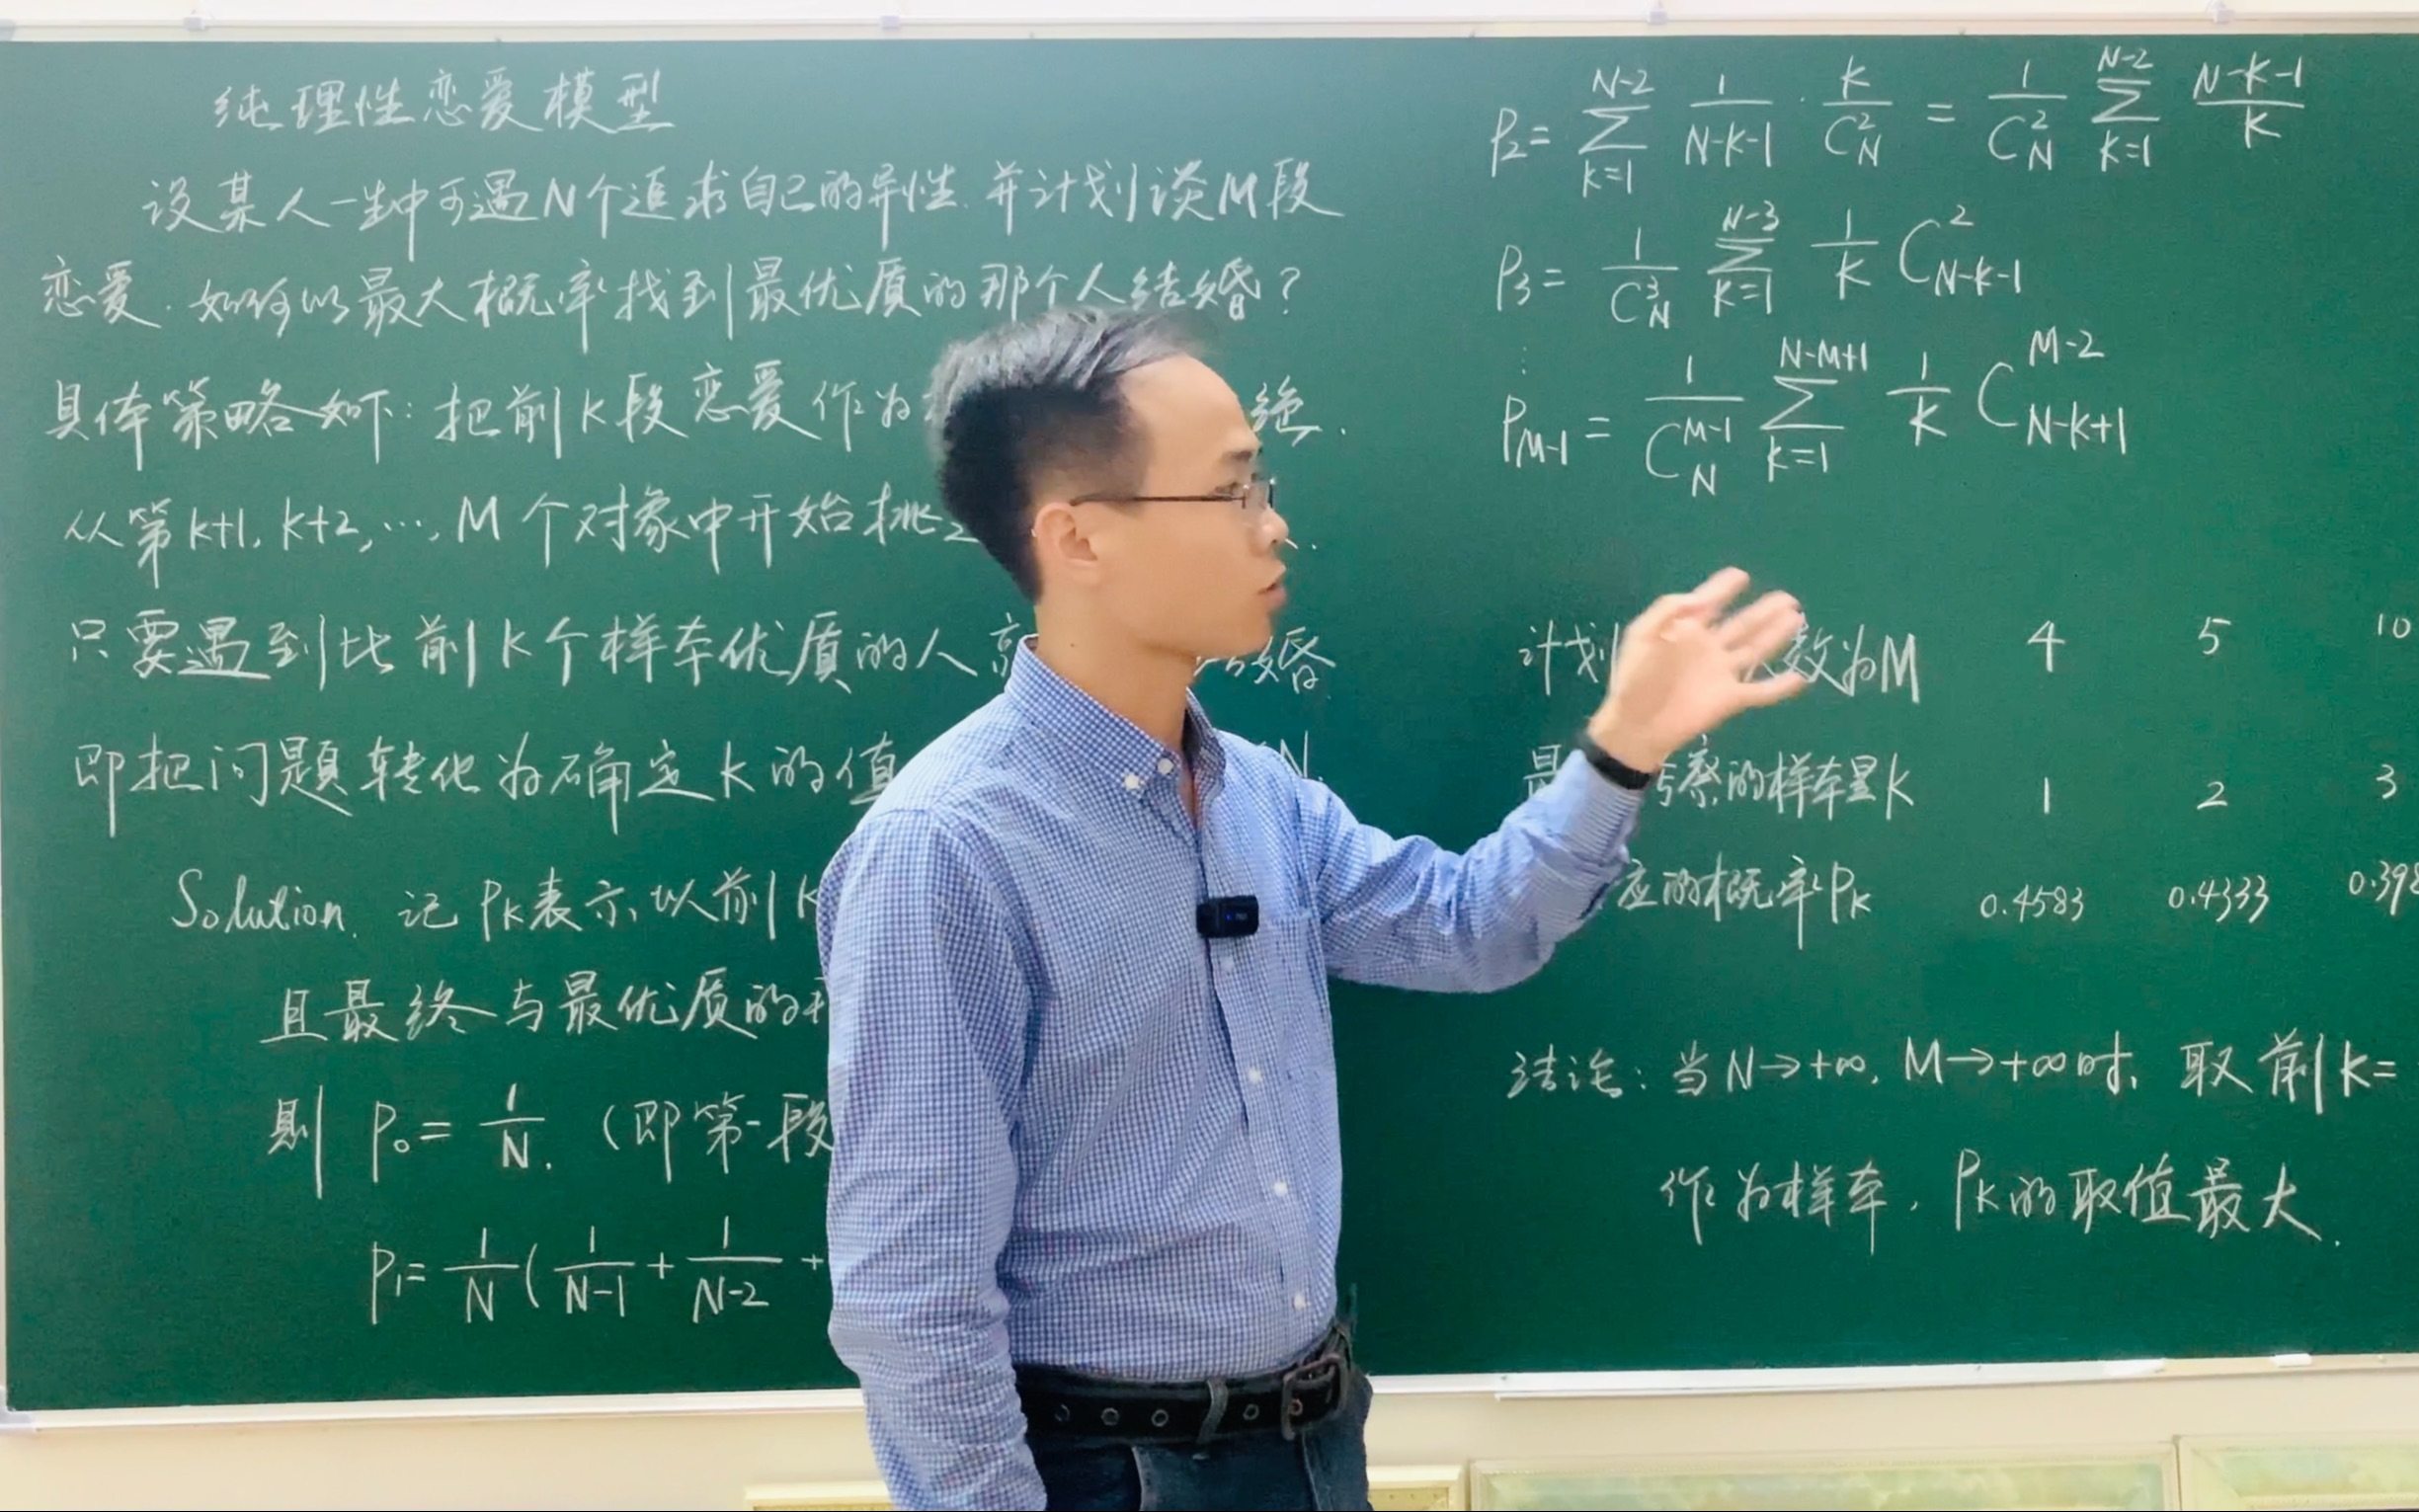 纯理性恋爱模型
设某人一生中可遇N个追求自己的异性.并计划谈M段
恋爱.如何以最大概率找到最优质的那个人结婚?
具体策略如下:把前K段恋爱作为 绝.
从第k+1, k+2, …, M个对象中开始挑
只要遇到比前K个样本优质的人 婚
即把问题转化为确定K的值 N.
Solution. 记 P_K表示以前K
且最终与最优质的
则 P_0 = 1/N. (即第一段
P_1 = 1/N ( 1/(N-1) + 1/(N-2) +
P_2 = ∑_{k=1}^{N-2} 1/(N-k-1) · k/C_N^2 = 1/C_N^2 ∑_{k=1}^{N-2} (N-k-1)/k
P_3 = 1/C_N^3 ∑_{k=1}^{N-3} 1/k C_{N-k-1}^2
⋮
P_{M-1} = 1/C_N^{M-1} ∑_{k=1}^{N-M+1} 1/k C_{N-k+1}^{M-2}
计划 数为M 4 5 10
考察的样本量K 1 2 3
应的概率P_K 0.4583 0.4333 0.398
结论:当N→+∞, M→+∞时, 取前K=
作为样本, P_K的取值最大.